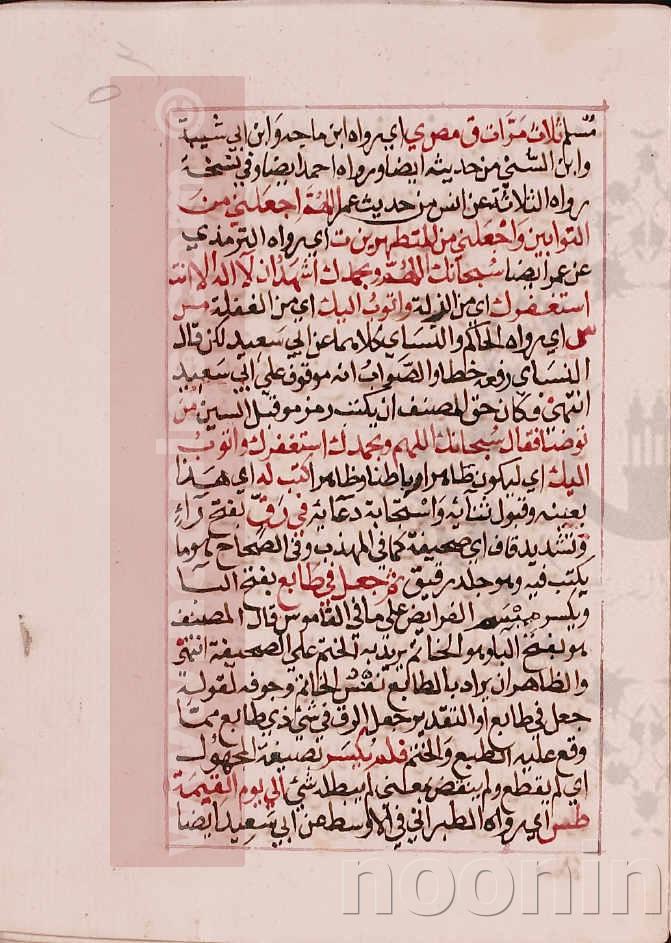 مسلم ثلاث مرات ق مص ري اي رواه ابن ماجه وابن ابي شيبة
وابن السني من حديثه ايضا ورواه احمد ايضا وفي نسخة
رواه الثلاثة عن انس من حديث عمر اللهم اجعلني من
التوابين واجعلني من المتطهرين ت اي رواه الترمذي
عن عمر ايضا سبحانك اللهم وبحمدك اشهد ان لا اله الا انت
استغفرك اي من الزلة واتوب اليك اي من الغفلة مس
س اي رواه الحاكم والنساي كلاهما عن ابي سعيد لكن قال
النساي رفعه خطا والصواب انه موقوف على ابي سعيد
انتهى وكان حق المصنف ان يكتب رمز مو قبل السين من
توضا فقال سبحانك اللهم وبحمدك استغفرك واتوب
اليك اي ليكون ظاهرا وباطنا وظاهرا كتب له اي هذا
بعينه وقبول ثنائه واستجابة دعائه في رق بفتح راء
وتشديد قاف اي صحيفة كما في المهذب وفي الصحاح هو ما
يكتب فيه وهو جلد رقيق ثم جعل في طابع بفتح البا
وبكسر الفرايض على ما في القاموس قال المصنف
هو بفتح البا وهو الخاتم يريد به الختم على الصحيفة انتهى
والظاهر ان يراد بالطابع نقش الخاتم وجوفه لقوله
جعل في طابع او التقدير جعل الرق في شي ذي طابع مما
وقع عليه الطبع والختم فلم يكسر بصيغة المجهول
اي لم يقطع ولم ينقض بمعنى لم يبطله شي الى يوم القيمة
طس اي رواه الطبراني في الاوسط عن ابي سعيد ايضا
noonin